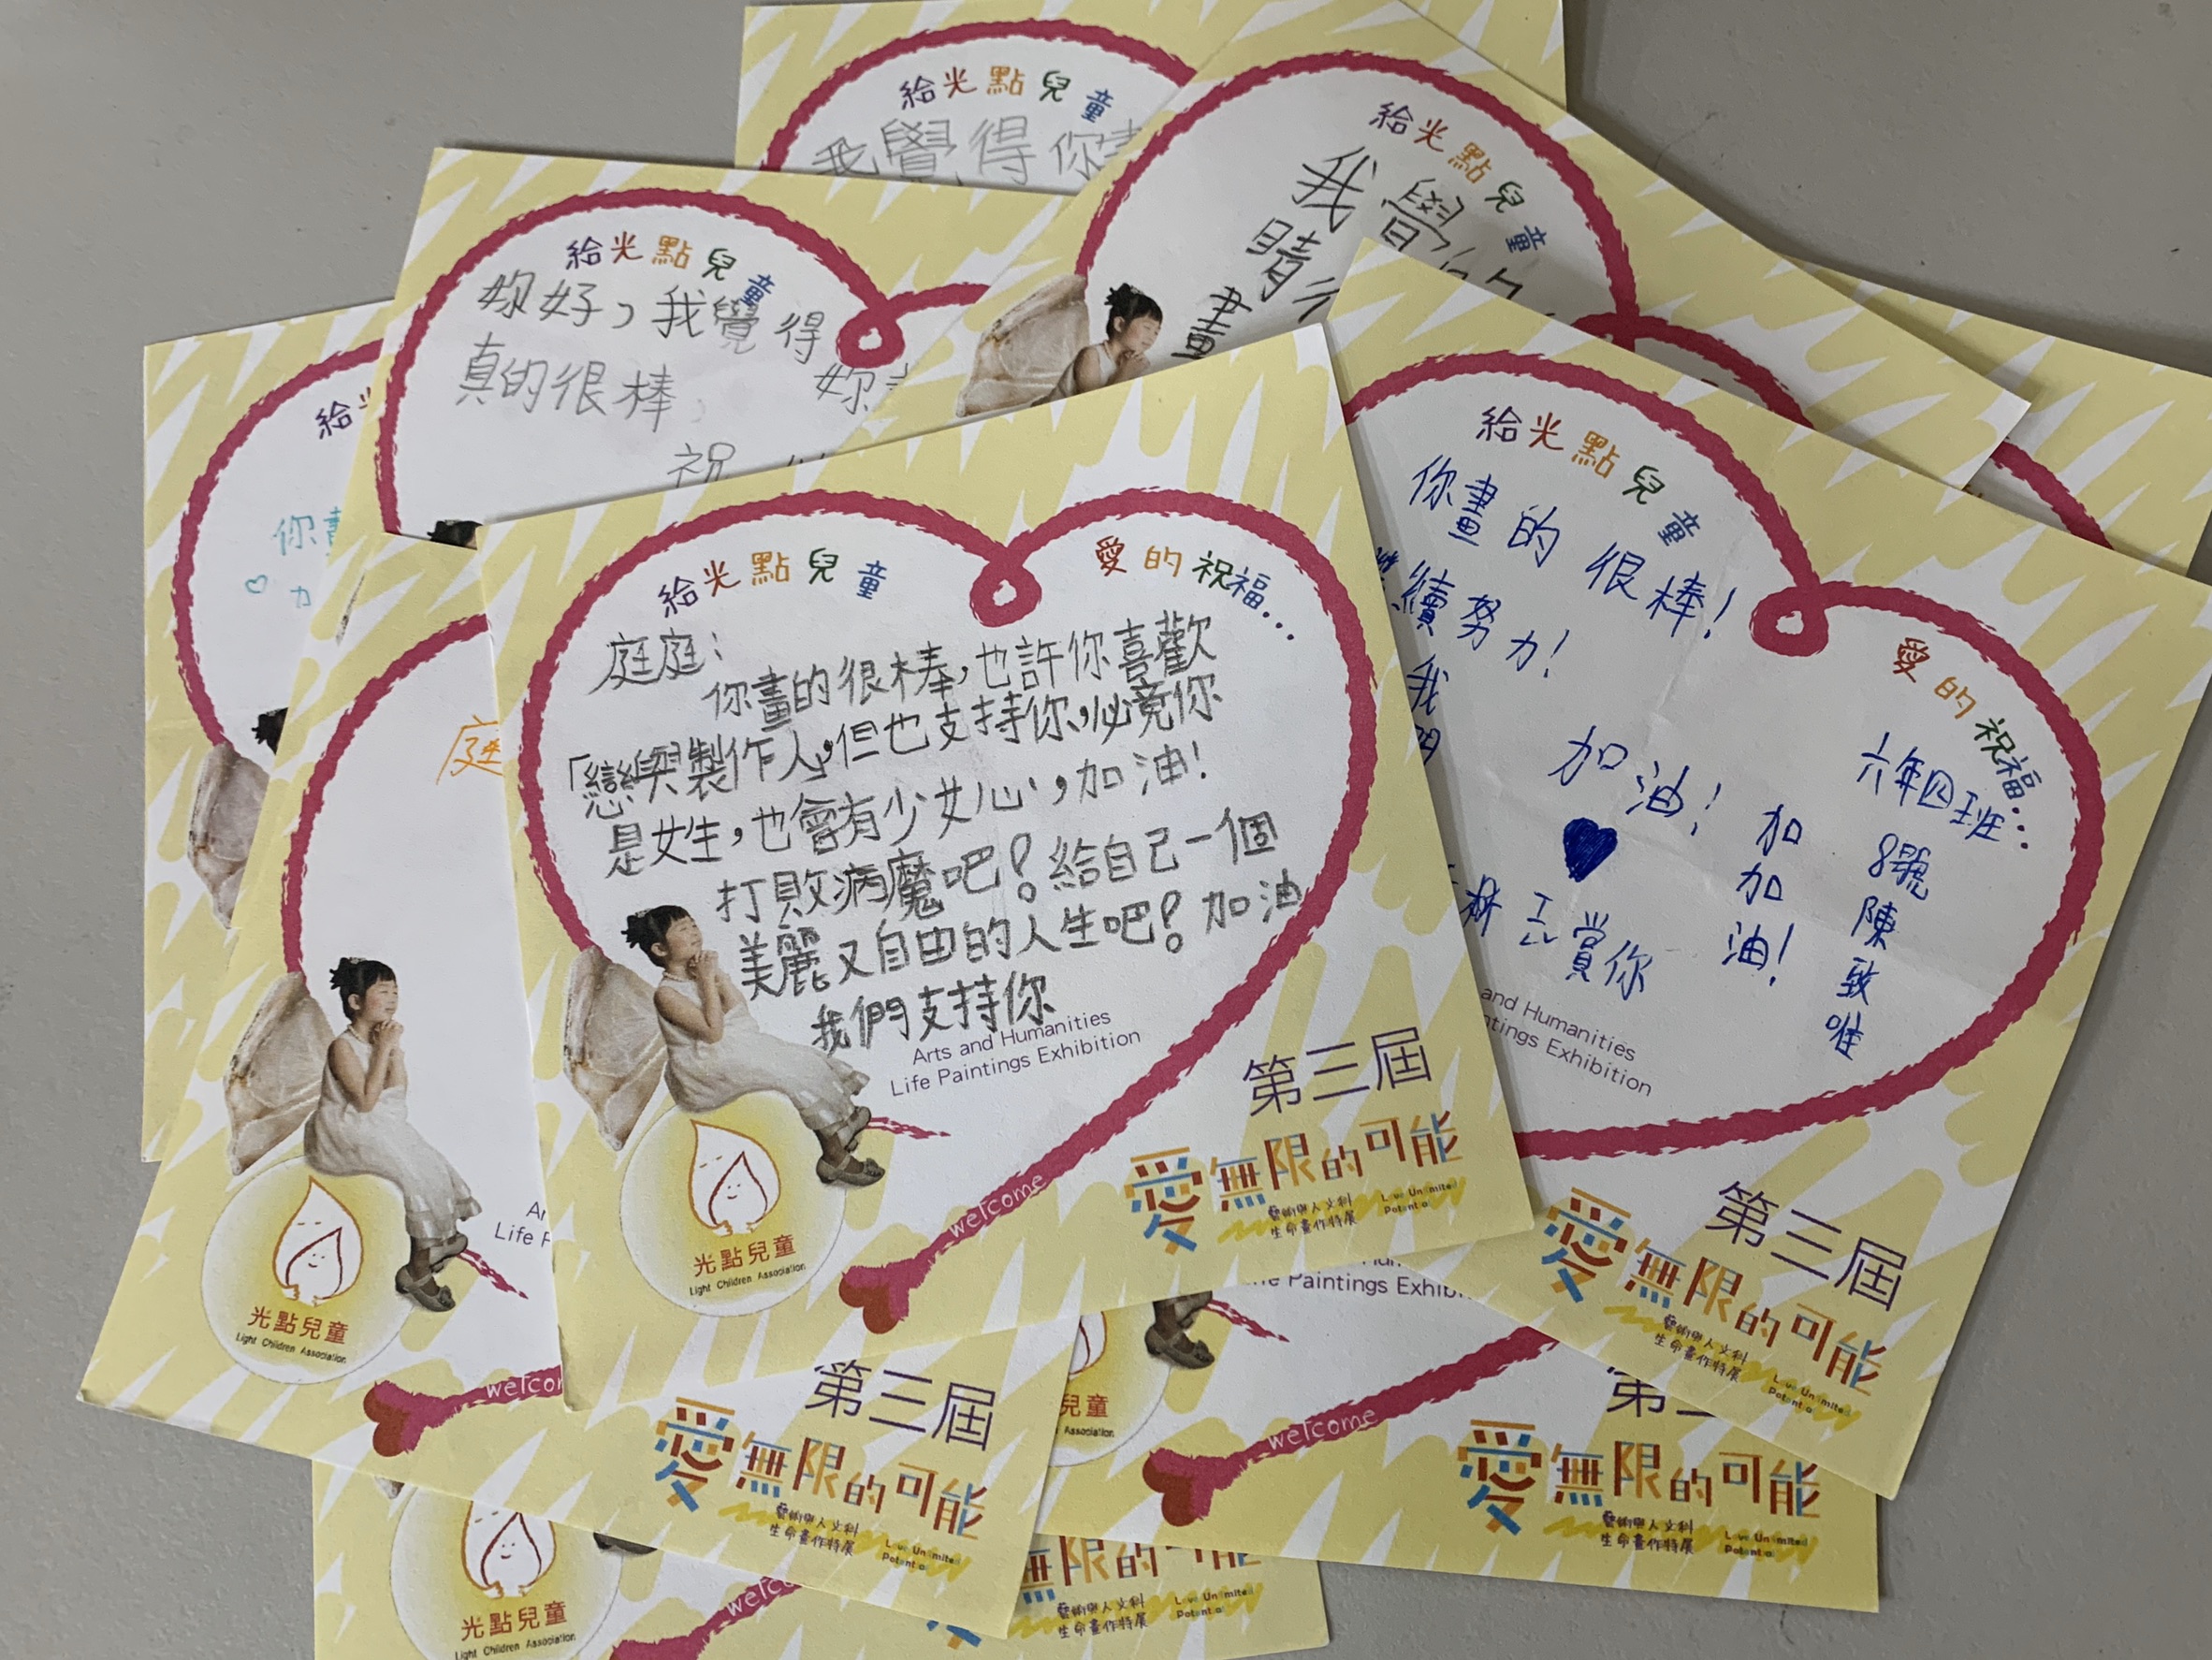 給光點兒童
我覺得你
給光點兒童
我覺
晴
畫
給光點兒童
妳好，我覺得
真的很棒，
妳
祝
給
你
力
庭
給光點兒童
愛的祝福...
庭庭：
你畫的很棒，也許你喜歡
「戀與製作人」，但也支持你，必竟你
是女生，也會有少女心，加油！
打敗病魔吧！給自己一個
美麗又自由的人生吧！加油
我們支持你
Arts and Humanities
Life Paintings Exhibition
第三屆
愛無限的可能
藝術與人文科
生命畫作特展
Love Unlimited
Potential
welcome
光點兒童
Light Children Association
給光點兒童
愛的祝福...
你畫的很棒！
續努力！
我
加油！
加
加
油！
賞你
六年四班
8號
陳
致
唯
and Humanities
ntings Exhibition
第三屆
愛無限的可能
藝術與人文科
生命畫作特展
Love Unlimited
Potential
Life
光點兒童
Light Children Association
welcom
第三屆
愛無限的可能
藝術與人文科
生命畫作特展
Love Unlimited
Potential
Paintings Exhib
兒童
Association
welcome
愛無限的可能
藝術與人文科
生命畫作特展
Love Unlimited
Potential
光點兒童
Light Children Association
welco
無限的可能
藝術與人文科
生命畫作特展
Love Unlimited
Potential